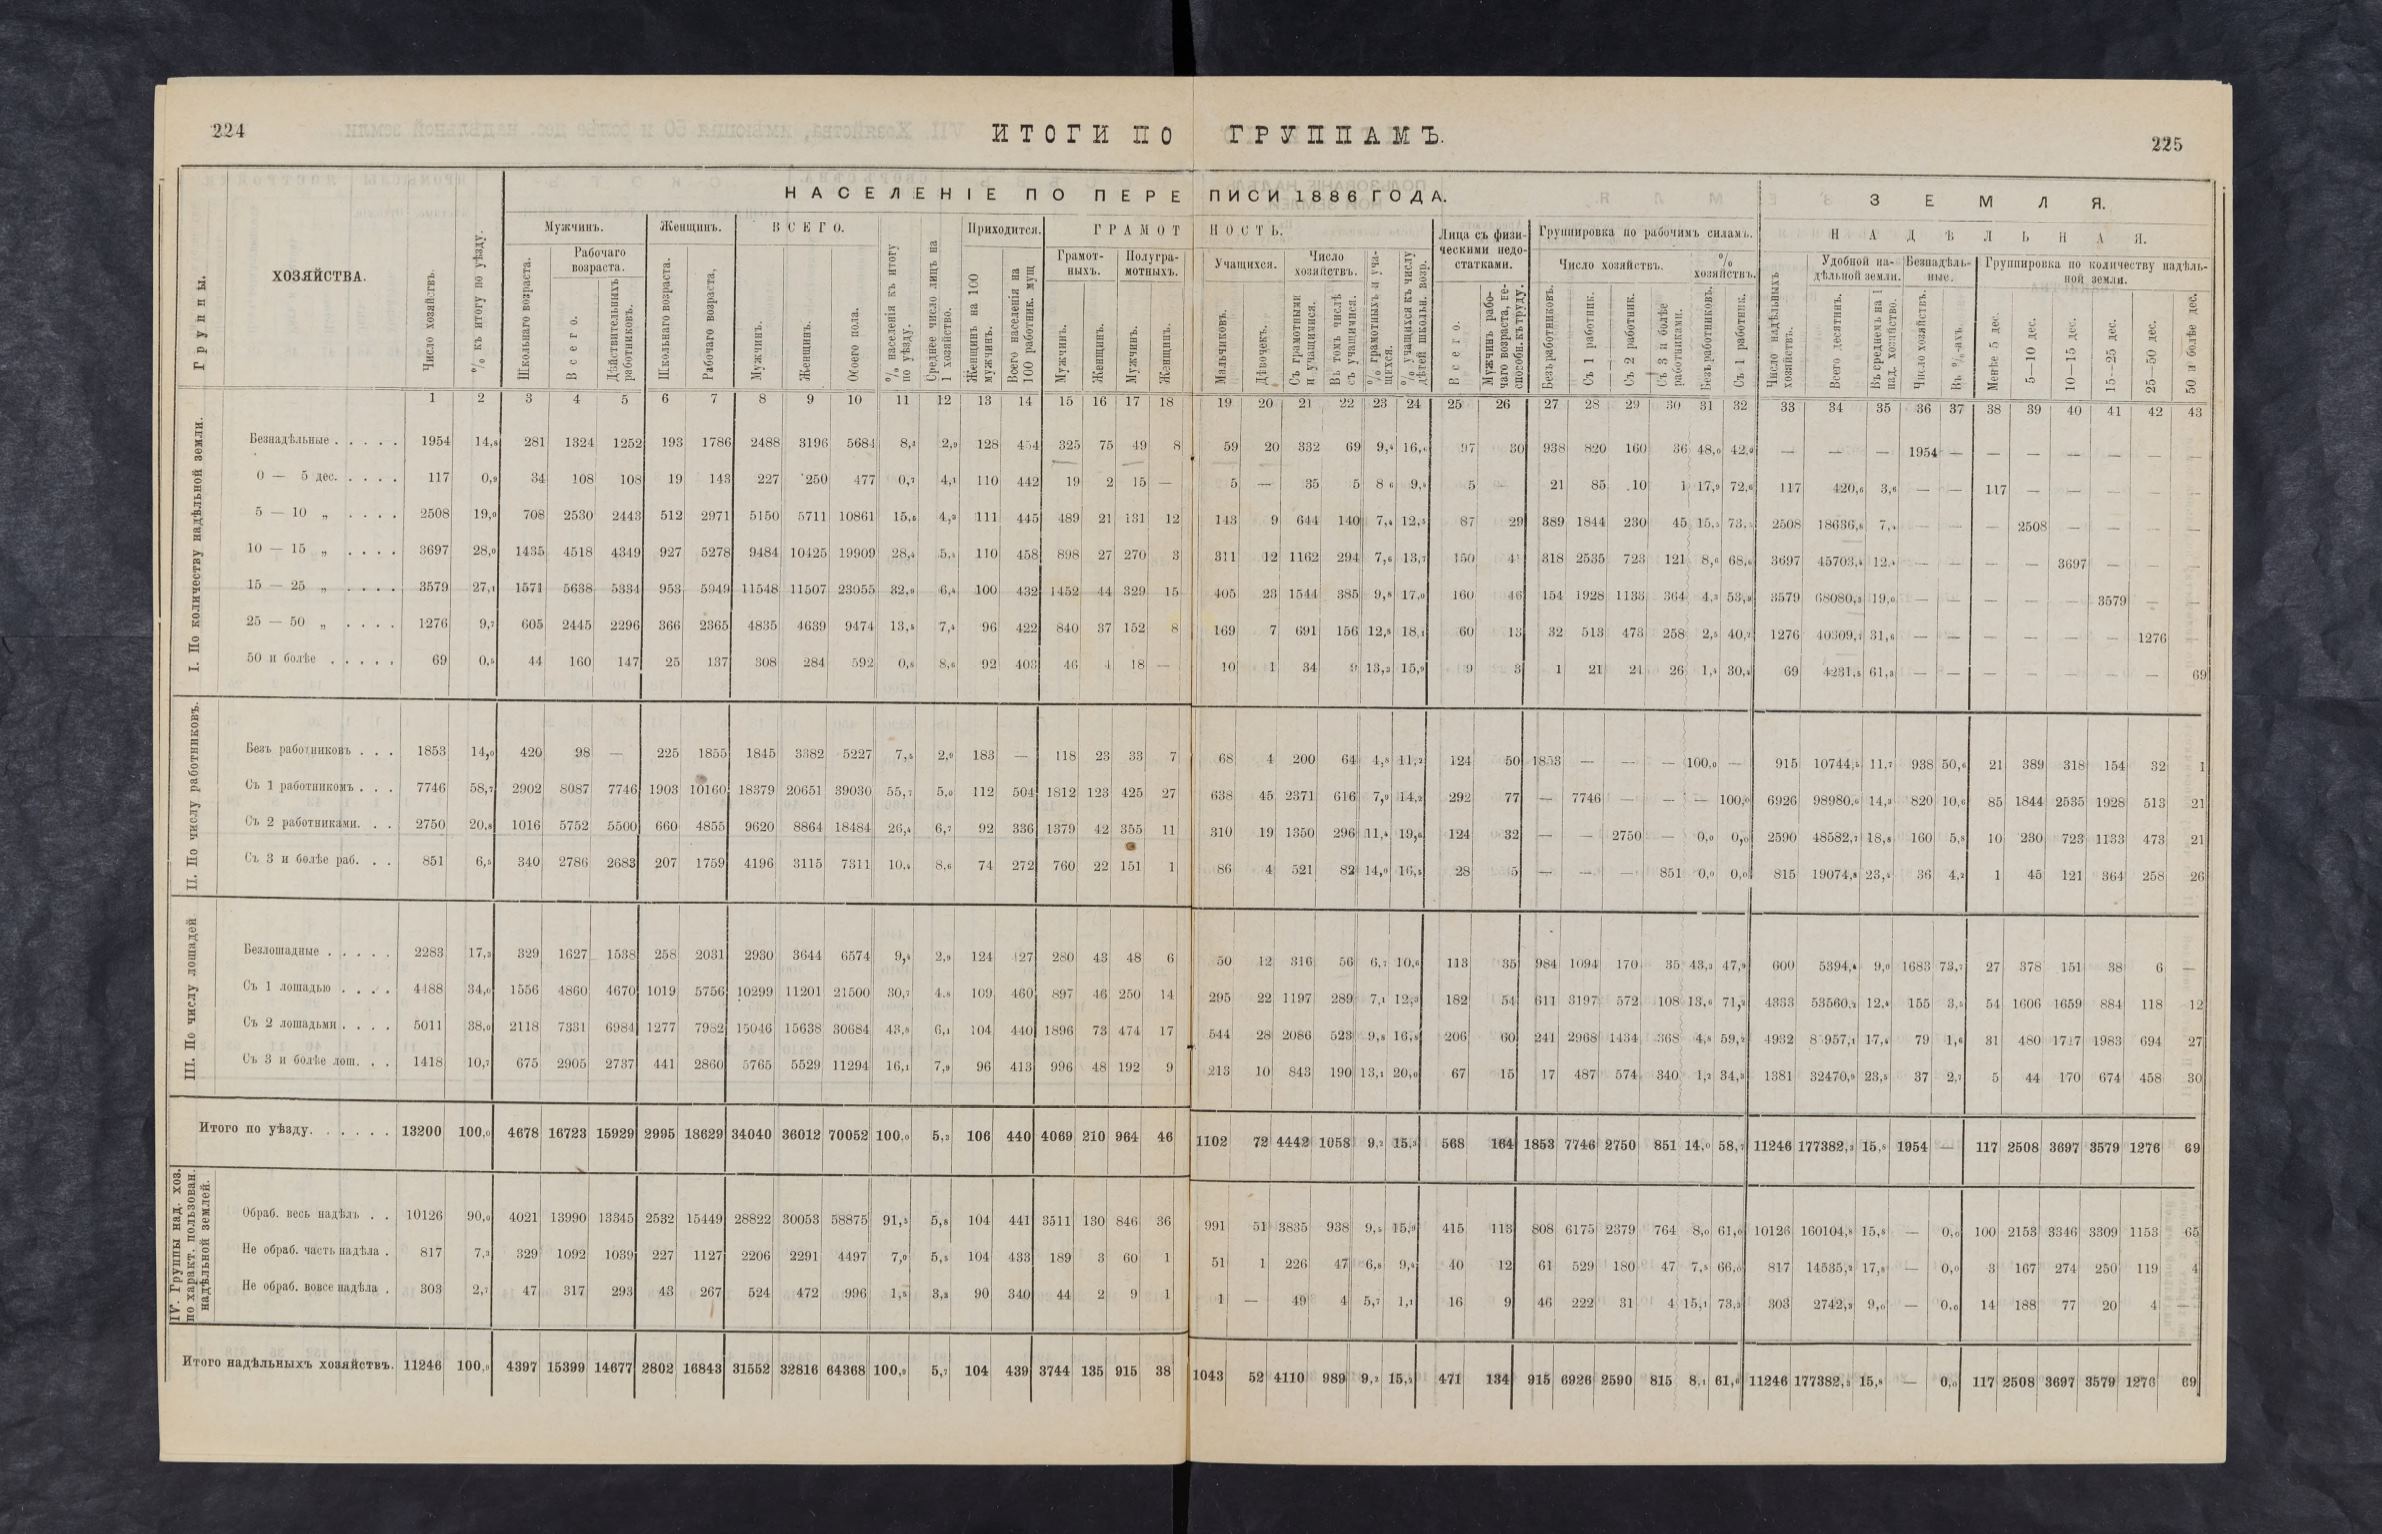 224
ИТОГИ ПО ГРУППАМЪ.
225
Группы.
ХОЗЯЙСТВА.
Число хозяйствъ.
% къ итогу по уѣзду.
НАСЕЛЕНІЕ ПО ПЕРЕПИСИ 1886 ГОДА.
ЗЕМЛЯ.
Мужчинъ.
Женщинъ.
ВСЕГО.
Приходится.
ГРАМОТНОСТЬ.
Лица съ физическими недостатками.
Группировка по рабочимъ силамъ.
НАДѢЛЬНАЯ.
Школьнаго возраста.
Рабочаго возраста.
Всего.
Дѣйствительныхъ работниковъ.
Школьнаго возраста.
Рабочаго возраста,
Мужчинъ.
Женщинъ.
Обоего пола.
% населенія къ итогу по уѣзду.
Среднее число лицъ на 1 хозяйство.
Женщинъ на 100 мужчинъ.
Всего населенія на 100 работник. мущ
Грамотныхъ.
Полуграмотныхъ.
Мужчинъ.
Женщинъ.
Мужчинъ.
Женщинъ.
Учащихся.
Число хозяйствъ.
Мальчиковъ.
Дѣвочекъ.
Съ грамотными и учащимися.
Въ томъ числѣ съ учащимися.
% грамотныхъ и учащихся.
% учащихся къ числу дѣтей школьн. возр.
Всего.
Мужчинъ рабочаго возраста, неспособн. къ труду.
Число хозяйствъ.
% хозяйствъ.
Безъ работниковъ.
Съ 1 работник.
Съ 2 работник.
Съ 3 и болѣе работниками.
Безъ работниковъ.
Съ 1 работник.
Число надѣльныхъ хозяйствъ.
Удобной надѣльной земли.
Всего десятинъ.
Въ среднемъ на 1 над. хозяйство.
Безнадѣльные.
Число хозяйствъ.
Въ %-ахъ.
Группировка по количеству надѣльной земли.
Менѣе 5 дес.
5—10 дес.
10—15 дес.
15—25 дес.
25—50 дес.
50 и болѣе дес.
1 2 3 4 5 6 7 8 9 10 11 12 13 14 15 16 17 18 19 20 21 22 23 24 25 26 27 28 29 30 31 32 33 34 35 36 37 38 39 40 41 42 43
I. По количеству надѣльной земли.
Безнадѣльные . . . . . 1954 14,8 281 1324 1252 193 1786 2488 3196 5684 2,9 128 454 325 75 49 8 59 20 332 69 97 30 938 820 160 36 48,0 42,0 — — — 1954 — — — — — — —
0 — 5 дес. . . . . 117 0,9 34 108 108 19 143 227 250 477 0,7 4,1 110 442 19 2 15 — 5 — 35 5 8,6 5 — 21 85 10 1 17,9 72,6 117 420,6 3,6 — — 117 — — — — —
5 — 10 „ . . . . 2508 19,0 708 2530 2443 512 2971 5150 5711 10861 15,5 4,3 111 445 489 21 131 12 143 9 644 140 7,4 12,5 87 29 389 1844 230 45 15,5 73,5 2508 18636,8 7,4 — — — 2508 — — — —
10 — 15 „ . . . . 3697 28,0 1435 4518 4349 927 5278 9484 10425 19909 28,4 5,4 110 458 898 27 270 3 311 12 1162 294 7,6 13,7 150 318 2535 723 121 8,6 68,6 3697 45703,4 12,4 — — — — 3697 — — —
15 — 25 „ . . . . 3579 27,1 1571 5638 5334 953 5949 11548 11507 23055 32,9 6,4 100 432 1452 44 329 15 405 23 1544 385 9,8 17,0 160 46 154 1928 1133 364 4,3 53,9 3579 68080,3 19,0 — — — — — 3579 — —
25 — 50 „ . . . . 1276 9,7 605 2445 2296 366 2365 4835 4639 9474 13,5 7,4 96 422 840 37 152 8 169 7 691 156 12,8 18,1 60 13 32 513 473 258 2,5 40,2 1276 40309,7 31,6 — — — — — — 1276
50 и болѣе . . . . . 69 0,5 44 160 147 25 137 308 284 592 0,8 8,6 92 403 46 4 18 — 10 1 34 9 13,3 15,9 9 3 1 21 21 26 1,4 30,4 69 4231,5 61,3 — — — — — — — 69
II. По числу работниковъ.
Безъ работниковъ . . . 1853 14,0 420 98 — 225 1855 1845 3382 5227 7,5 2,9 183 — 118 23 33 7 68 4 200 64 4,8 11,2 124 50 1853 — — — 100,0 — 915 10744,5 11,7 938 50,6 21 389 318 154 32 1
Съ 1 работникомъ . . . 7746 58,7 2902 8087 7746 1903 10160 18379 20651 39030 55,7 5,0 112 504 1812 123 425 27 638 45 2371 616 7,9 14,2 292 77 — 7746 — — — 100,0 6926 98980,6 14,3 820 10,6 85 1844 2535 1928 513 21
Съ 2 работниками. . . 2750 20,8 1016 5752 5500 660 4855 9620 8864 18484 26,4 6,7 92 336 1379 42 355 11 310 19 1350 296 11,4 19,6 124 32 — — 2750 — 0,0 0,0 2590 48582,7 18,8 160 5,8 10 230 723 1133 473 21
Съ 3 и болѣе раб. . . 851 6,5 340 2786 2683 207 1759 4196 3115 7311 10,4 8,6 74 272 760 22 151 1 86 4 521 82 14,0 16,5 28 5 — — — 851 0,0 0,0 815 19074,8 23,4 36 4,2 1 45 121 364 258 26
III. По числу лошадей
Безлошадные . . . . . 2283 17,3 329 1627 1538 258 2031 2930 3644 6574 9,4 2,9 124 427 280 43 48 6 50 12 316 56 6,7 10,6 113 35 984 1094 170 35 43,3 47,9 600 5394,4 9,0 1683 73,7 27 378 151 38 6 —
Съ 1 лошадью . . . . 4488 34,0 1556 4860 4670 1019 5756 10299 11201 21500 30,7 4,8 109 460 897 46 250 14 295 22 1197 289 7,1 12,3 182 54 611 3197 572 108 13,6 71,2 4333 53560,2 12,4 155 3,5 54 1606 1659 884 118 12
Съ 2 лошадьми . . . . 5011 38,0 2118 7331 6984 1277 7982 15046 15638 30684 43,8 6,1 104 440 1896 73 474 17 544 28 2086 523 9,8 16,8 206 60 241 2968 1434 368 4,8 59,2 4932 17,4 79 1,6 31 480 1717 1983 694 27
Съ 3 и болѣе лош. . . 1418 10,7 675 2905 2737 441 2860 5765 5529 11294 16,1 7,9 96 413 996 48 192 9 213 10 843 190 13,1 20,0 67 15 17 487 574 340 1,2 34,3 1381 32470,9 23,5 37 2,7 5 44 170 674 458 30
Итого по уѣзду. . . . . . 13200 100,0 4678 16723 15929 2995 18629 34040 36012 70052 100,0 5,3 106 440 4069 210 964 46 1102 72 4442 1058 9,2 15,3 568 164 1853 7746 2750 851 14,0 58,7 11246 177382,3 15,8 1954 — 117 2508 3697 3579 1276 69
IV. Группы над. хоз. по характ. пользован. надѣльной землей.
Обраб. весь надѣлъ . . 10126 90,0 4021 13990 13345 2532 15449 28822 30053 58875 91,5 5,8 104 441 3511 130 846 36 991 51 3835 938 9,5 15,9 415 113 808 6175 2379 764 8,0 61,0 10126 160104,8 15,8 — 0,0 100 2153 3346 3309 1153 65
Не обраб. часть надѣла . 817 7,3 329 1092 1039 227 1127 2206 2291 4497 7,0 5,5 104 433 189 3 60 1 51 1 226 47 6,8 9,4 40 12 61 529 180 47 7,5 66,0 817 14535,2 17,8 — 0,0 3 167 274 250 119 4
Не обраб. вовсе надѣла . 303 2,7 47 317 293 43 267 524 472 996 1,5 3,3 90 340 44 2 9 1 1 — 49 4 5,7 1,1 16 9 46 222 31 4 15,1 73,3 303 2742,3 9,0 — 0,0 14 188 77 20 4
Итого надѣльныхъ хозяйствъ. 11246 100,0 4397 15399 14677 2802 16843 31552 32816 64368 100,0 5,7 104 439 3744 135 915 38 1043 52 4110 989 9,2 15,2 471 134 915 6926 2590 815 8,1 61,6 11246 177382,3 15,8 — 0,0 117 2508 3697 3579 1276 69